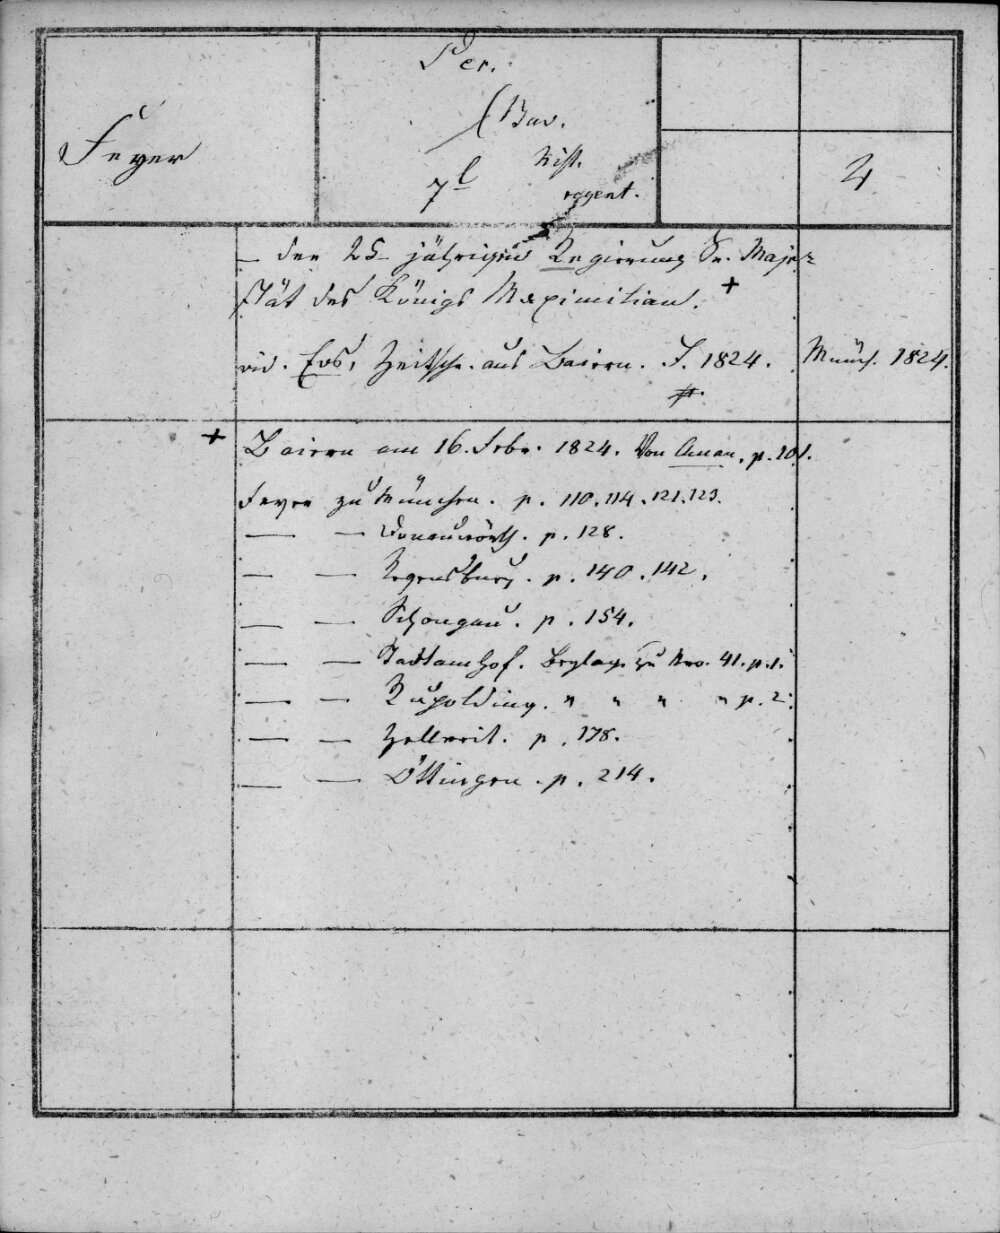 Feyer
Per.
(Bav.
7l
hist.
regent.
4
— der 25-jährigen Regierung Sr. Maje-
stät des Königs Maximilian. +
vid. Eos, Zeitschr. aus Baiern. J. 1824.
Münch. 1824.
#
+ Baiern am 16. Febr. 1824. Von p. 101.
Feyer zu München. p. 110. 114. 121. 123.
— — Donauwörth. p. 128.
— — Regensburg. p. 140. 142.
— — Schongau. p. 154.
— — Stadtamhof. Beylage zu Nro. 41. p. 1.
— — Ruhpolding. " " " " p. 2.
— — p. 178.
— — Öttingen. p. 214.